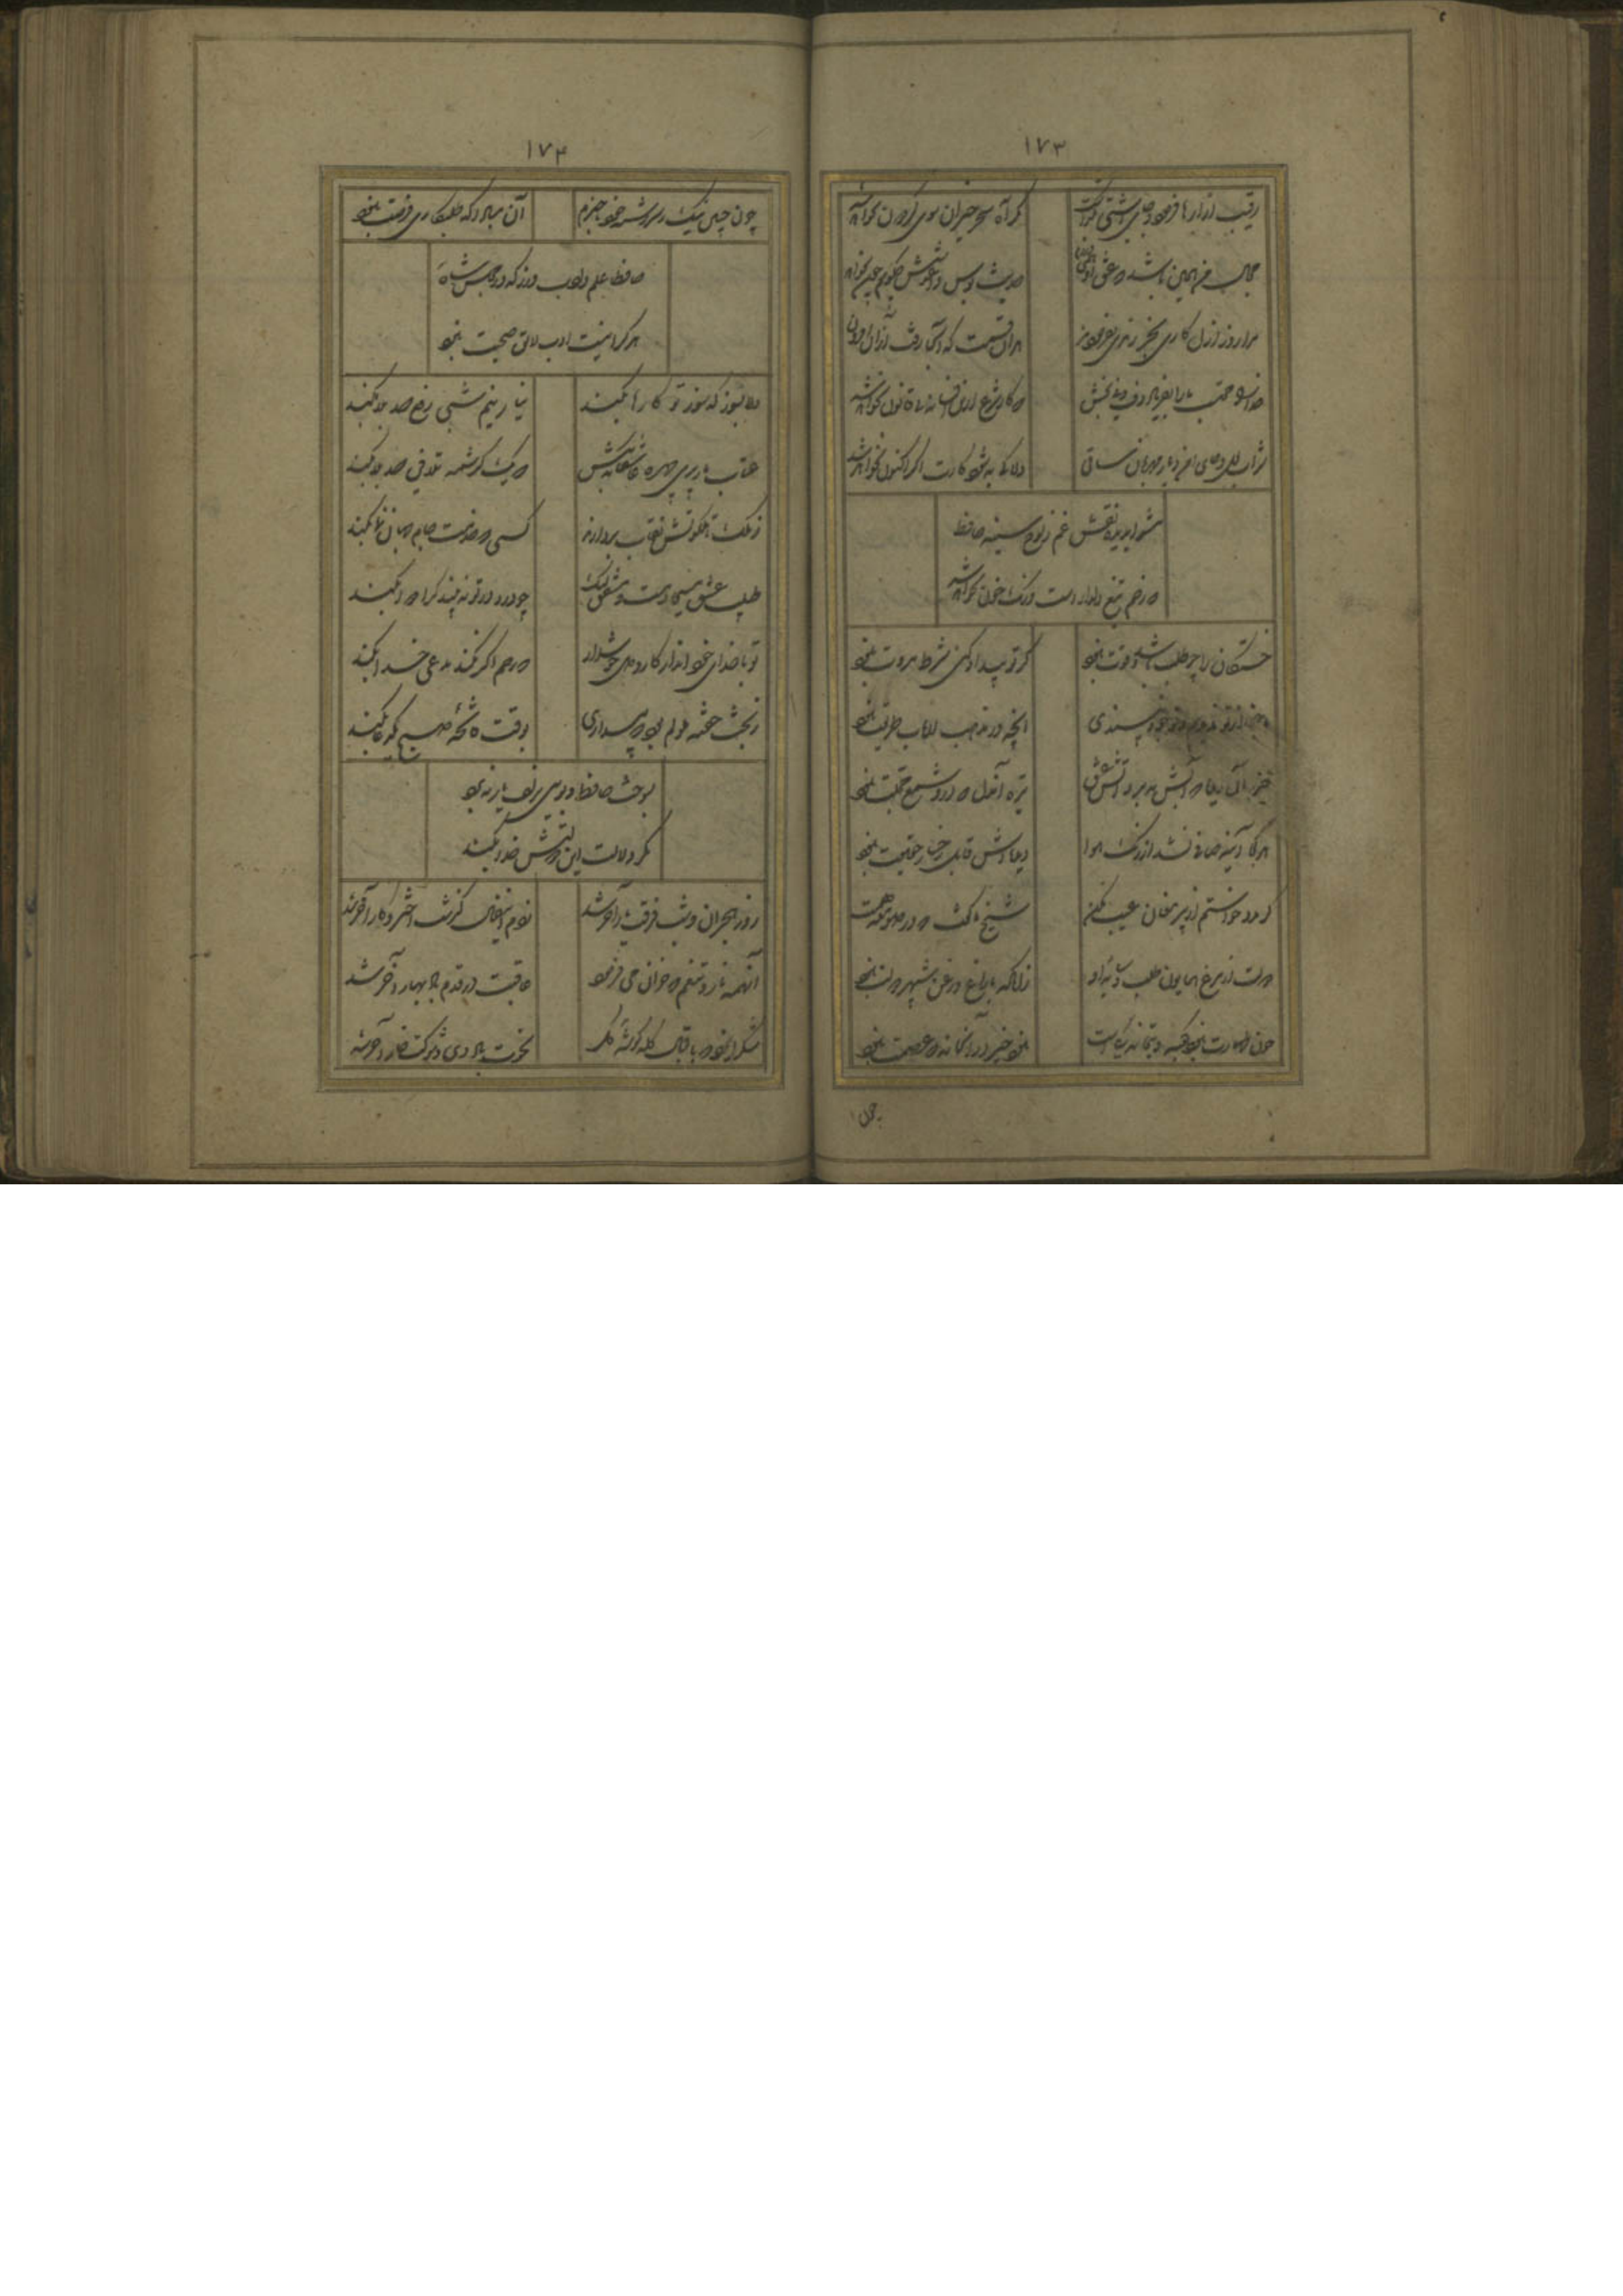 ۱۷۳
رقیب ازارها فرمود و جای اشتی نکذاشت مکر آه سحر خیزان سوی کردون نخواهد شد
مجال من همین باشد که عشق او حدیث بوس و آغوشش چکویم چون نخواهد شد
مرا روز ازل کاری بجز رندی نفرمودند هر آن قسمت که آنجا رفت از آن افزون
خدا را محتسب ما را بفریاد دف و نی بخش که کار شرع ازین افسانه بی قانون نخواهد شد
شراب لعل و جای امن و یار مهربان ساقی دلا کی به شود کارت اکر اکنون نخواهد شد
مشو ای دیده نقش غم ز لوح سینه حافظ
که زخم تیغ دلدار است و رنک خون نخواهد شد
خستکان را چو طلب باشد و قوت نبود کر تو بیداد کنی شرط مروت نبود
ما جفا از تو ندیدیم و تو خود نپسندی انچه در مذهب ارباب طریقت نبود
خیره آن دیده که آبش نبرد آتش عشق تیره آندل که درو شمع محبت نبود
هر که آینه صافی نشد از زنک هوا دیده اش قابل رخسار حقیقت نبود
کر مدد خواستم از پیر مغان عیب مکن شیخ ما کفت که در صومعه همت نبود
دولت از مرغ همایون طلب و سایه او زانکه با زاغ و زغن شهپر دولت نبود
چون طهارت نبود کعبه و بتخانه یکیست نبود خیر در آنخانه که عصمت نبود
چون
۱۷۴
چون چنین نیک ز سررشته خود بیخبرم آن مباد که مددکاری فرصت نبود
حافظا علم و ادب ورز که در مجلس شاه
هر کرا نیست ادب لایق صحبت نبود
دلا بسوز که سوز تو کارها بکند نیاز نیم شبی دفع صد بلا بکند
عتاب یار پری چهره عاشقانه بکش که یک کرشمه تلافی صد بلا بکند
ز ملک تا ملکوتش نقاب بردارند کسی که خدمت جام جهان نما بکند
طبیب عشق مسیحا دمست و مشفق لیک چو درد در تو نه بیند کرا دوا بکند
تو با خدای خود انداز کار و دل خوش دار که رحم اکر نکند مدعی خدا بکند
ز بخت خفته ملولم بود که بیداری بوقت فاتحه صبح یکدعا بکند
بسوخت حافظ و بویی بزلف یار نبرد
مکر دلالت این دولتش صبا بکند
روز هجران و شب فرقت یار آخر شد زدم این فال کذشت اختر و کار آخر شد
آنهمه ناز و تنعم که خزان می فرمود عاقبت در قدم باد بهار آخر شد
شکر ایزد که باقبال کله کوشه کل نخوت باد دی و شوکت خار آخر شد